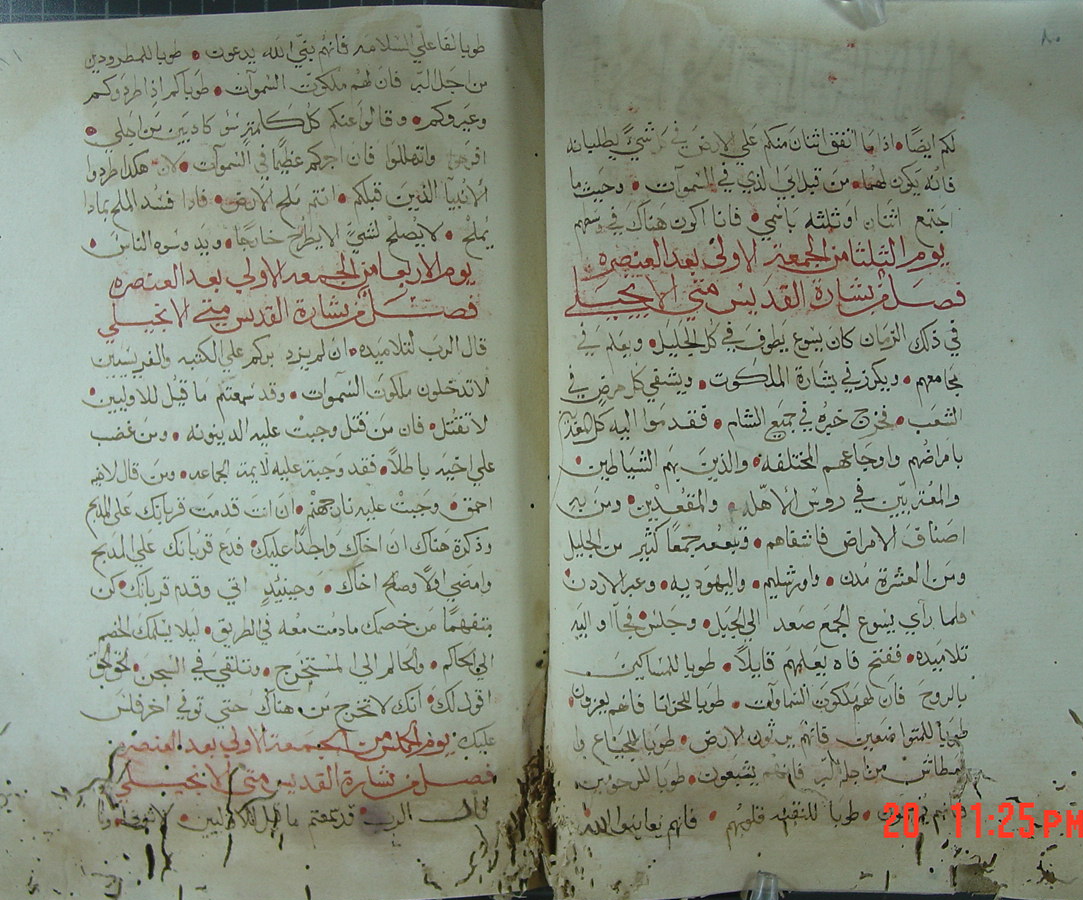 لكم ايضًا اذا ما اتفق اثنان منكم علي الارض في كل شيءً يطلبانه
فانه يكون لهما من قبل ابي الذي في السموات وحيث ما
اجتمع اثنان او ثلثه باسمي فانا اكون هناك في وسطهم
يوم الثلثا من الجمعة الاولي بعد العنصره
فصل من بشارة القديس متي الانجيلي
في ذلك الزمان كان يسوع يطوف في كل الجليل ويعلم في
مجامعهم ويكرز في بشارة الملكوت ويشفي كل مرض في
الشعب فخرج خبره في جميع الشام فقدموا اليه كل
بامراضهم واوجاعهم المختلفه والذين بهم الشياطين
والمعتريّين في روس الاهله والمقعدين ومن به
اصناف الامراض فاشفاهم وتبعه جمعًا كثير من الجليل
ومن العشرة مدن واورشليم واليهوديه وعبر الاردن
فلما رأي يسوع الجمع صعد الي الجبل وجلس فجاأوا اليه
تلاميده ففتح فاه يعلمهم قايلًا طوبا للمساكين
بالروح فان لهم ملكوت السماوات طوبا للحزانا فانهم يعزون
طوبا للمتواضعين فانهم يرثون الارض طوبا للجياع وا
لعطاش من اجل البر فانهم يشبعون طوبا للرحومين
فانهم يُرحمون طوبا للنقيه قلوبهم فانهم يعاينوا الله
طوبا لفاعلي السلامه فانهم بني الله يدعون طوبا للمطرودين
من اجل البر فان لهم ملكوت السموات طوباكم اذا طردوكم
وعيروكم وقالوا عنكم كل كلمة سو كادبين من اجلي
افرحوا وتهللوا فان اجركم عظيمًا في السموآت لان هكدا طردوا
الانبيا الذين قبلكم انتم ملح الارض فاذا فسد الملح بمادا
يُملح لا يصلح لشيً الا يطرح خارجًا ويدوسوه الناس
يوم الاربعا من الجمعه الاولي بعد العنصره
فصل من بشارة القديس متي الانجيلي
قال الرب لتلاميده ان لم يزد بركم علي الكتبه والفريسيين
لا تدخلون ملكوت السموات وقد سمعتم ما قيل للاوليين
لا تقتل فان من قتل وجبت عليه الدينونه ومن غضب
علي اخيه باطلًا فقد وجبة عليه لايمة الجماعه ومن قال لاخيه
احمق وجبتْ عليه نار جهنم ان انت قدمت قربانك علي المدبح
وذكرة هناك ان اخاك واجدًا عليك فدع قربانك علي المدبح
وامضي اولًا وصالح اخاك وحينيدٍ اتي وقدم قربانك كن
متفهمًا من خصمك مادمت معه في الطريق ليلا يسلمك الخصم
الي الحاكم والحاكم الي المستخرج وتلقي في السجن الحق الحق
اقول لك انك لا تخرج من هناك حتي توفي اخر فلس
عليك يوم الخميس من الجمعة الاولي بعد العنصره
فصل من بشارة القديس متي الانجيلي
قال الرب قد سمعتم ما قيل للاوليين
20 11:25PM